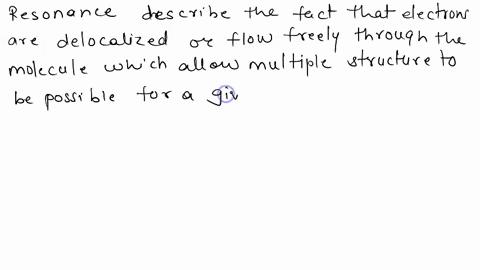 Resonance describe the fact that electrons
are delocalized or flow freely through the
molecule which allow multiple structure to
be possible for a giv